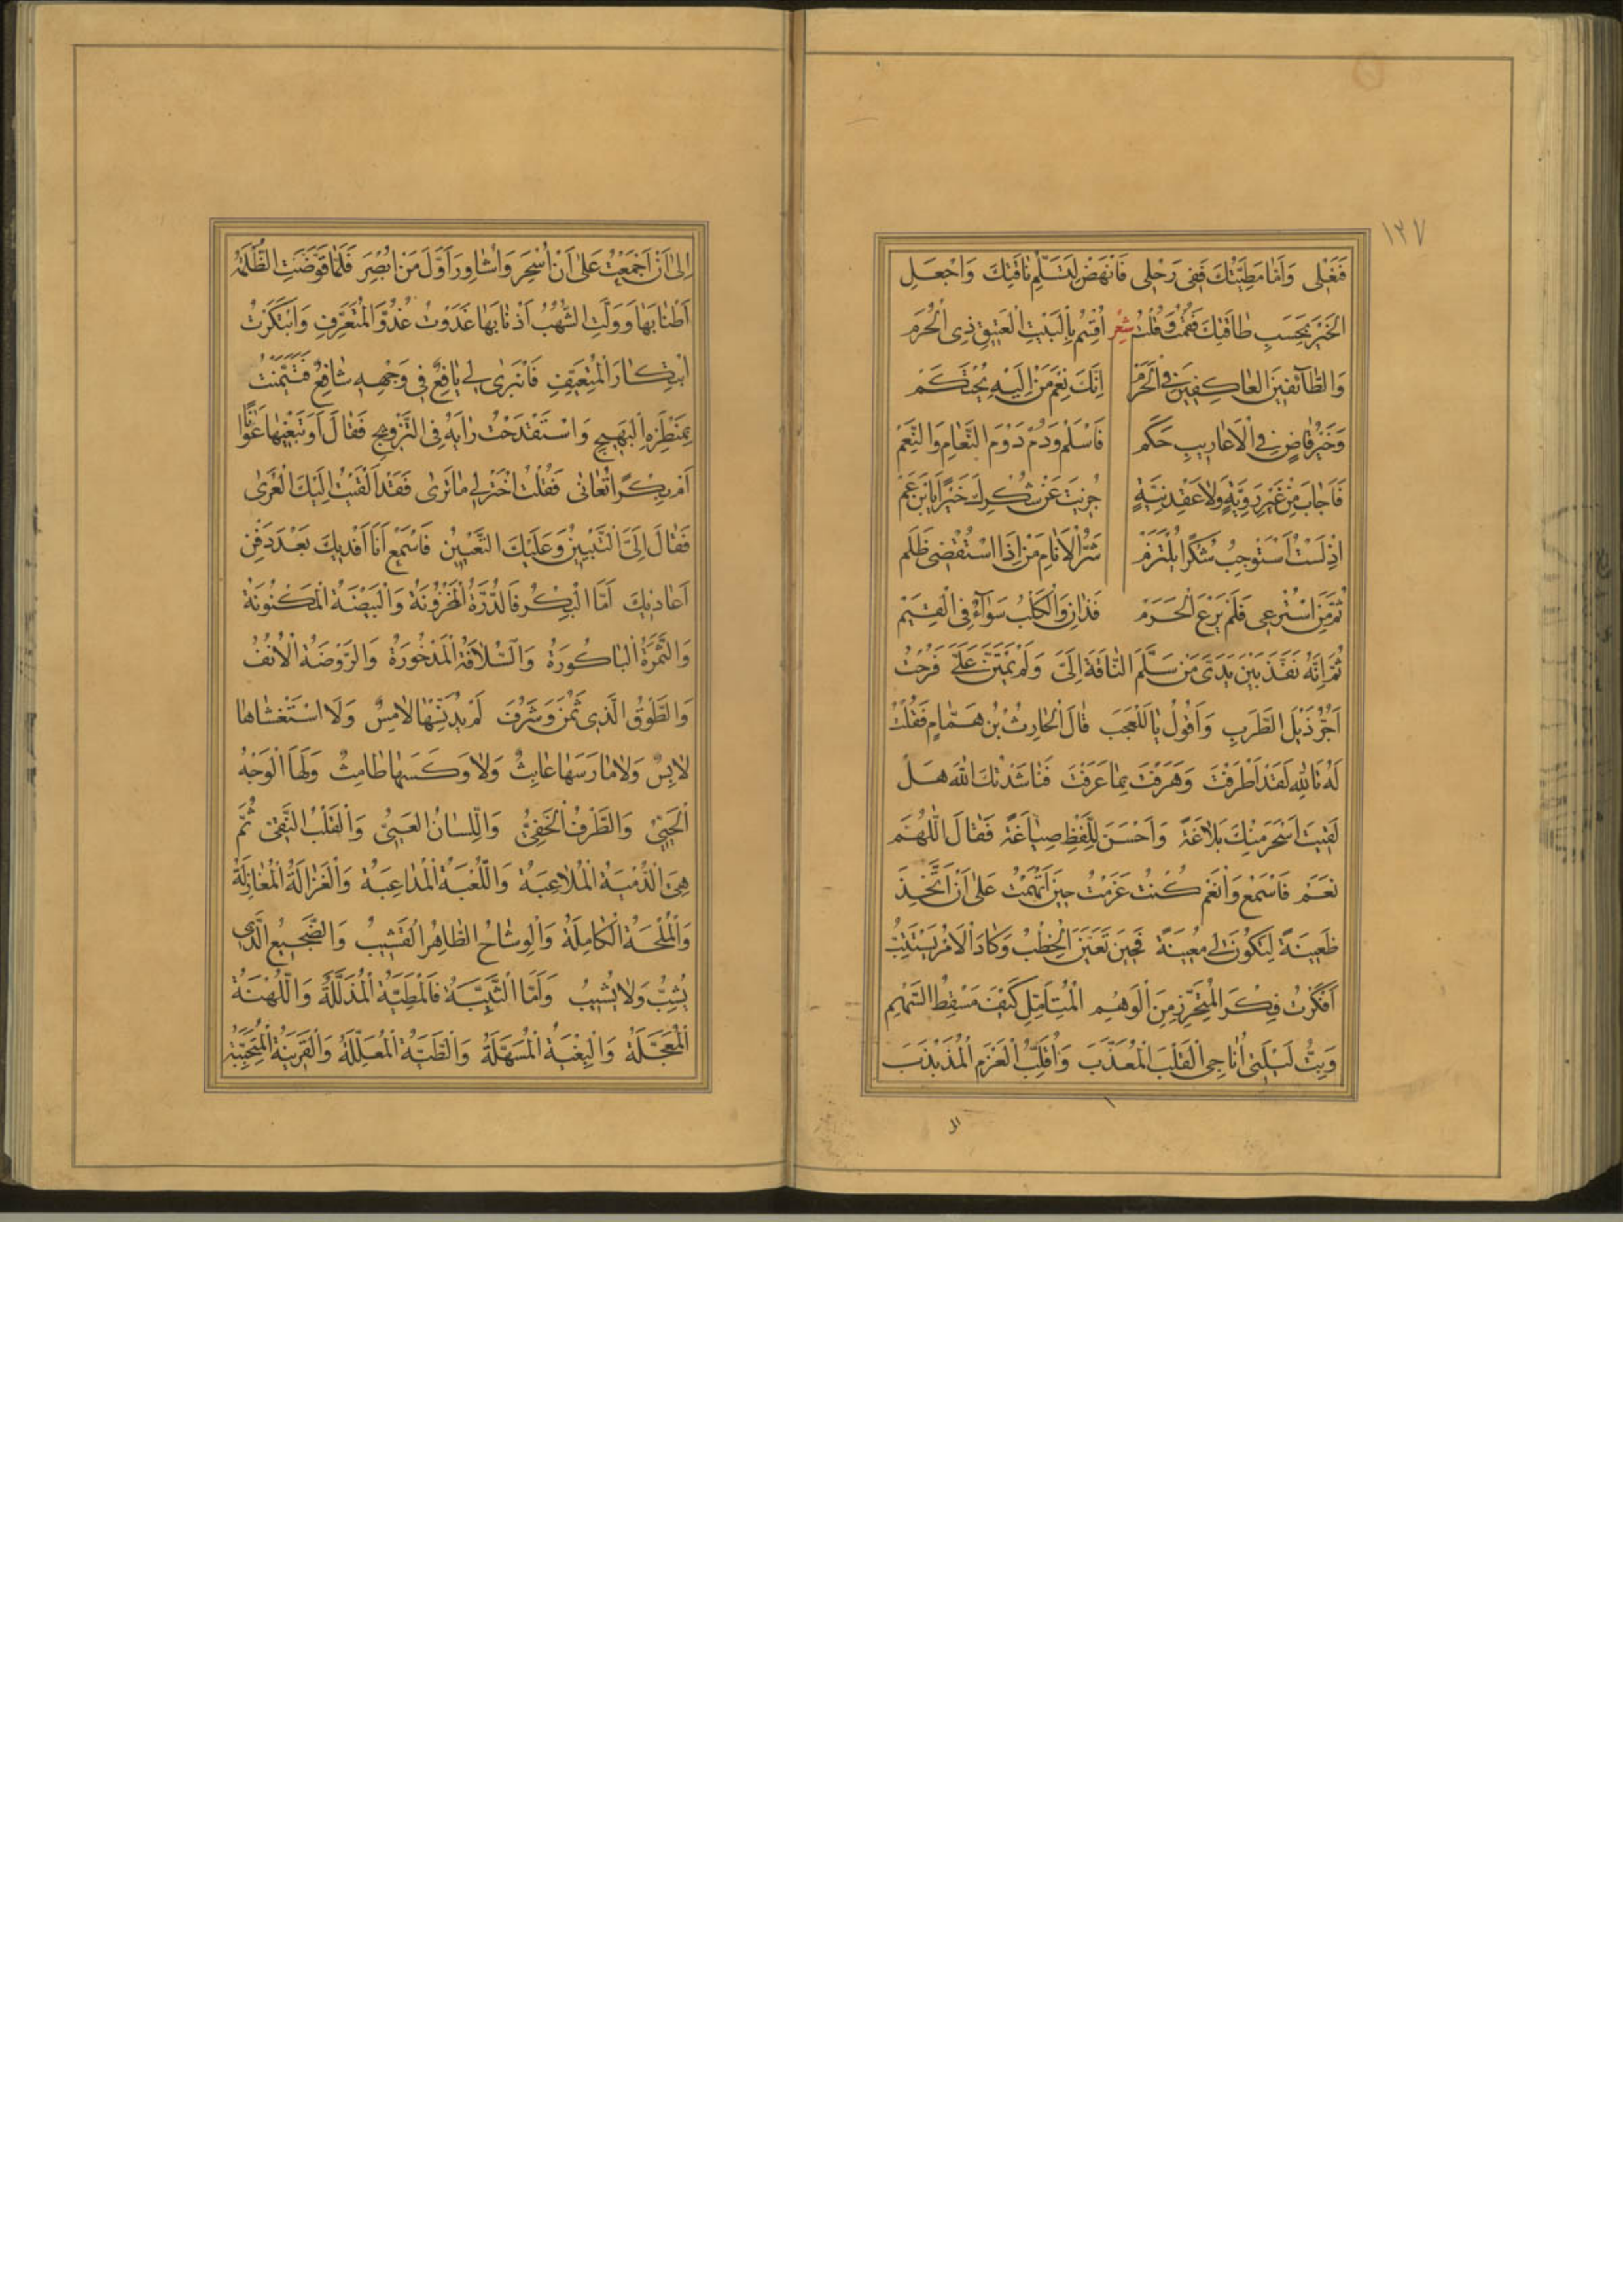 ١٢٧
فَنَعْلِى وَاَمّا مَطِيَّتُكَ فَفِى رَحْلِى فَانْهَضْ لِتَسَلُّمِ نَاقَتِكَ وَاجْعَلِ
الْخَيْرَ بِحَسَبِ طَاقَتِكَ فَقُمْتُ وَقُلْتُ شِعْر اُقْسِمُ بِالْبَيْتِ الْعَتِيقِ ذِى الْحُرَمِ
وَالطَّائِفِينَ الْعَاكِفِينَ فِى الْحَرَمْ اِنَّكَ نِعْمَ مَنْ اِلَيْهِ يُحْتَكَمْ
وَخَيْرُ قَاضٍ فِى الْاَعَارِيبِ حَكَمْ فَاسْلَمْ وَدُمْ دَوْمَ النَّعَامِ وَالنَّعَمْ
فَاَجَابَ مِنْ غَيْرِ رَوِيَّةٍ وَلَا عَقْدِ نِيَّةٍ جُزِيتَ عَنْ شُكْرِكَ خَيْرًا يَا ابْنَ عَمّ
اِذْ لَسْتُ اَسْتَوْجِبُ شُكْرًا يُلْتَزَمْ شَرُّ الْاَنَامِ مَنْ اِذَا اسْتُقْضِىَ ظَلَم
ثُمَّ مَنِ اسْتُرْعِى فَلَمْ يَرْعَ الْحَرَمْ فَذَانِ وَالْكَلْبُ سَوَآءٌ فِى الْقِيَمْ
ثُمَّ اِنَّهُ نَفَّذَ بَيْنَ يَدَىَّ مَنْ سَلَّمَ النَّاقَةَ اِلَىَّ وَلَمْ يَمْتَنَّ عَلَىَّ فَرُحْتُ
اَجُرُّ ذَيْلَ الطَّرَبِ وَاَقُولُ يَا لَلْعَجَبِ قَالَ الْحَارِثُ بْنُ هَمَّامٍ فَقُلْتُ
لَهُ تَاللّٰهِ لَقَدْ اَطْرَفْتَ وَهَرَفْتَ بِمَا عَرَفْتَ فَنَاشَدْتُكَ اللّٰهَ هَلْ
لَقِيتَ اَسْحَرَ مِنْكَ بَلَاغَةً وَاَحْسَنَ لِلَّفْظِ صِيَاغَةً فَقَالَ اللّٰهُمَّ
نَعَمْ فَاسْمَعْ وَانْعَمْ كُنْتُ عَزَمْتُ حِينَ اَتْهَمْتُ عَلىٰ اَنْ اَتَّخِذَ
ظَعِينَةً لِتَكُونَ لِى مُعِينَةً فَحِينَ تَعَيَّنَ الْخِطْبُ وَكَادَ الْاَمْرُ يَسْتَتِبُّ
اَفْكَرْتُ فِكْرَ الْمُتَحَرِّزِ مِنَ الْوَهْمِ الْمُتَاَمِّلِ كَيْفَ مَسْقِطُ السَّهْمِ
وَبِتُّ لَيْلَتِى اُنَاجِى الْقَلْبَ الْمُعَذَّبَ وَاُقَلِّبُ الْعَزْمَ الْمُذَبْذَبَ
اِلىٰ اَنْ اَجْمَعْتُ عَلىٰ اَنْ اُسْحِرَ وَاُشَاوِرَ اَوَّلَ مَنْ اُبْصِرَ فَلَمَّا قَوَّضَتِ الظُّلْمَةُ
اَطْنَابَهَا وَوَلَّتِ الشُّهُبُ اَذْنَابَهَا غَدَوْتُ غُدُوَّ الْمُتَعَرِّفِ وَابْتَكَرْتُ
ابْتِكَارَ الْمُتَعَيِّفِ فَانْبَرٰى لِى يَافِعٌ فِى وَجْهِهِ شَافِعٌ فَتَيَمَّنْتُ
بِمَنْظَرِهِ الْبَهِيجِ وَاسْتَقْدَحْتُ رَايَهُ فِى التَّزْوِيجِ فَقَالَ اَوَ تَبْغِيهَا عَوَانًا
اَمْ بِكْرًا تُعَانٰى فَقُلْتُ اخْتَرْ لِى مَا تَرٰى فَقَدْ اَلْقَيْتُ اِلَيْكَ الْعُرٰى
فَقَالَ اِلَىَّ التَّبْيِينُ وَعَلَيْكَ التَّعْيِينُ فَاسْمَعْ اَنَا اَفْدِيكَ بَعْدَ دَفْنِ
اَعَادِيكَ اَمَّا الْبِكْرُ فَالدُّرَّةُ الْمَخْزُونَةُ وَالْبَيْضَةُ الْمَكْنُونَةُ
وَالثَّمَرَةُ الْبَاكُورَةُ وَالسُّلَافَةُ الْمَذْخُورَةُ وَالرَّوْضَةُ الْاُنُفُ
وَالطَّوْقُ الَّذِى ثَمُنَ وَشَرُفَ لَمْ يُدَنِّسْهَا لَامِسٌ وَلَا اسْتَغْشَاهَا
لَابِسٌ وَلَا مَارَسَهَا عَابِثٌ وَلَا وَكَسَهَا طَامِثٌ وَلَهَا الْوَجْهُ
الْحَيِىُّ وَالطَّرْفُ الْخَفِىُّ وَاللِّسَانُ الْعَيِىُّ وَالْقَلْبُ النَّقِىُّ ثُمَّ
هِىَ الدُّمْيَةُ الْمُلَاعِبَةُ وَاللُّعْبَةُ الْمُدَاعِبَةُ وَالْغَزَالَةُ الْمُغَازِلَةُ
وَالْمُلْحَةُ الْكَامِلَةُ وَالْوِشَاحُ الظَّاهِرُ الْقَشِيبُ وَالضَّجِيعُ الَّذِى
يُشِبُّ وَلَا يُشِيبُ وَاَمَّا الثَّيِّبَةُ فَالْمَطِيَّةُ الْمُذَلَّلَةُ وَاللُّهْنَةُ
الْمُعَجَّلَةُ وَالْبِغْيَةُ الْمُسَهَّلَةُ وَالطَّبَّةُ الْمُعَلِّلَةُ وَالْقَرِينَةُ الْمُتَحَبِّبَةُ